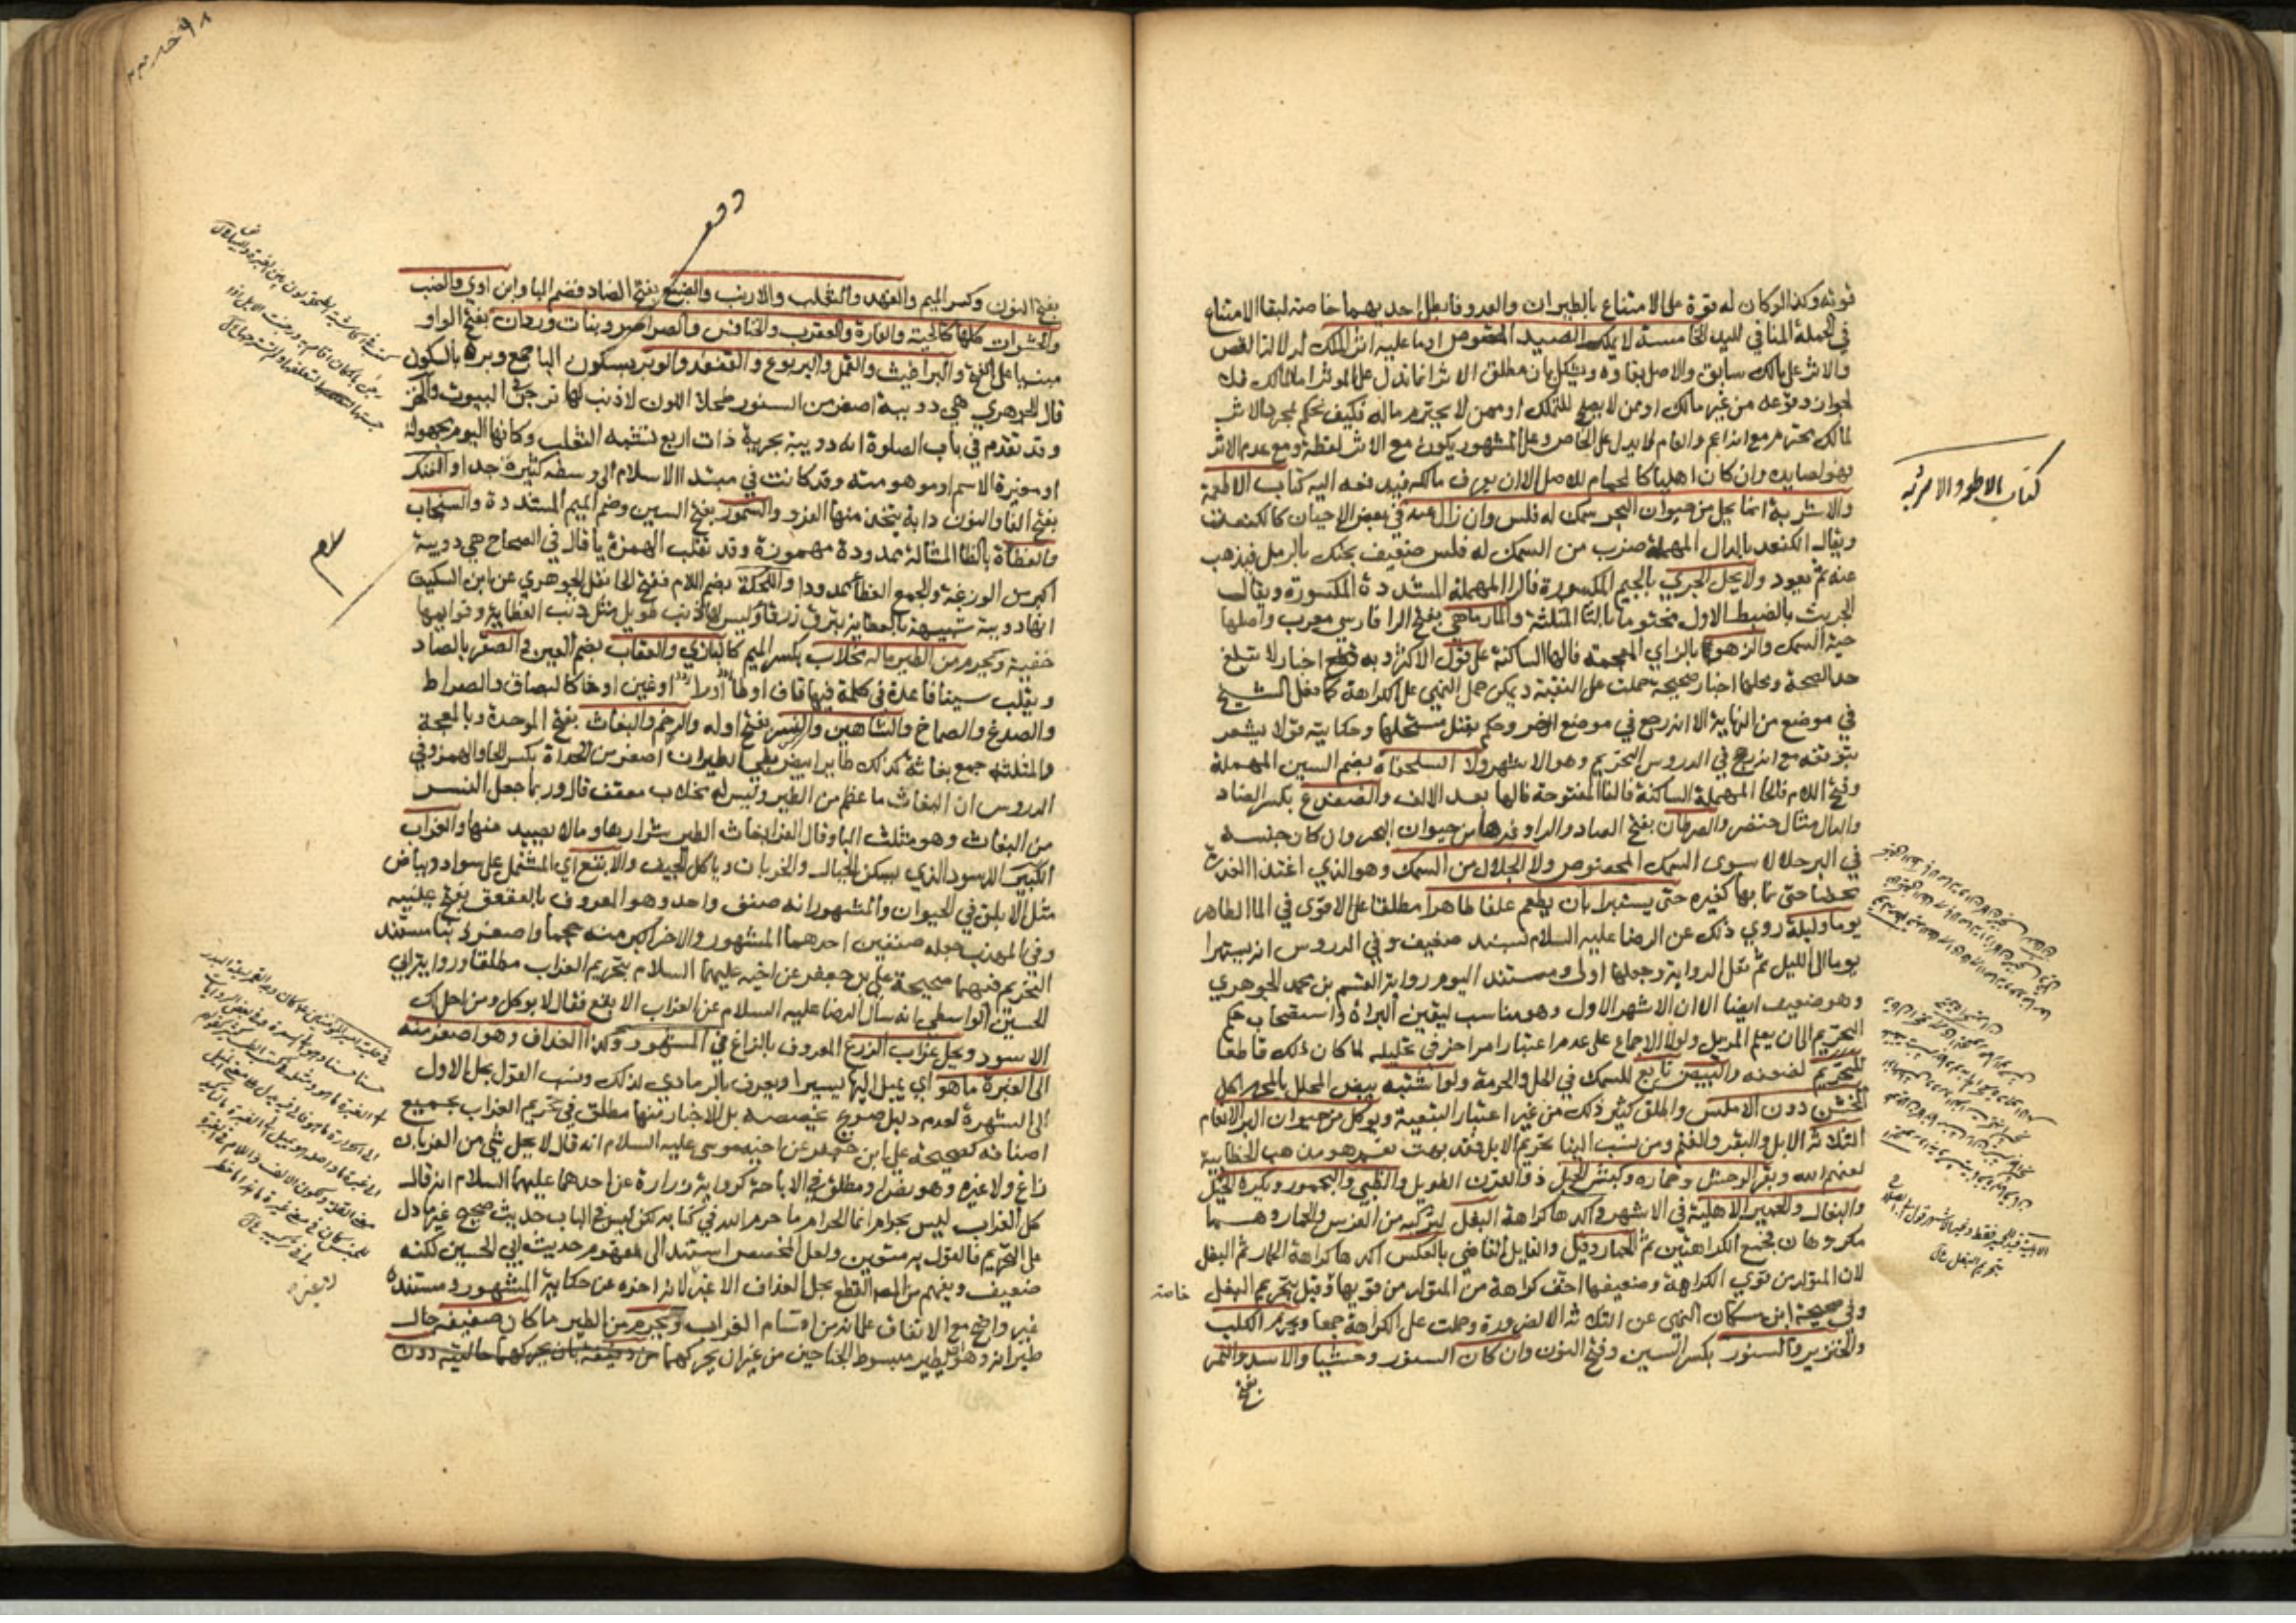 قوته وكذا لو كان له قوة على الامتناع بالطيران والعدو فابطل احديهما خاصة لبقا الامتناع
في الجملة المنافي لليد الخامسة لا يملك الصيد المقصوص او ما عليه اثر الملك لدلالة القص
والاثر على مالك سابق والاصل بقاوه ويشكل بان مطلق الاثر انما يدل على المؤثر اما المالك فلا
لجواز وقوعه من غير مالك او ممن لا يصلح للتملك او ممن لا يحترم ماله فكيف يحكم بمجرد الاثر
لمالك محترم مع انه اعم والعام لا يدل على الخاص وعلى المشهور يكون مع الاثر لقطة ومع عدم الاثر
فهو لصايده وان كان اهليا كالحمام للاصل الا ان يعرف مالكه فيدفعه اليه كتاب الاطعمة
والاشربة انما يحل من حيوان البحر سمك له فلس وان زال عنه في بعض الاحيان كالكنعت
ويقال الكنعد بالدال المهملة ضرب من السمك له فلس ضعيف يحتك بالرمل فيذهب
عنه ثم يعود ولا يحل الجري بالجيم المكسورة فالرا المهملة المشددة المكسورة ويقال
الجريث بالضبط الاول مختوما بالثا المثلثة والمارماهي بفتح الرا فارسي معرب واصلها
حية السمك والزهو بالزاي المعجمة فالها الساكنة على قول الاكثر وبه قطع اخبار لا تبلغ
حد الصحة وبحلها اخبار صحيحة حملت على التقية ويمكن حمل النهي على الكراهة كما فعل الشيخ
في موضع من النهاية الا انه رجع في موضع اخر وحكم بقتل مستحلها وحكايته قولا يشعر
بتوقفه مع انه رجح في الدروس التحريم وهو الاشهر ولا السلحفاة بضم السين المهملة
وفتح اللام فالحا المهملة الساكنة فالفا المفتوحة فالها بعد الالف والضفدع بكسر الضاد
والدال مثال خنصر والسرطان بفتح الصاد والرا وغيرها من حيوان البحر وان كان جنسه
في البر حلالا سوى السمك المخصوص ولا الجلال من السمك وهو الذي اغتذا العذرة
محضا حتى نما بها كغيره حتى يستبرا بان يطعم علفا طاهرا مطلقا على الاقوى في الما الطاهر
يوما وليلة روي ذلك عن الرضا عليه السلام بسند ضعيف وفي الدروس انه يستبرا
يوما الى الليل ثم نقل الرواية وجعلها اولى ومستند اليوم رواية القسم بن محمد الجوهري
وهو ضعيف ايضا الا ان الاشهر الاول وهو مناسب ليقين البراة واستصحاب حكم
التحريم الى ان يعلم المزيل ولولا الاجماع على عدم اعتبار امر اخر في تحليله لما كان ذلك قاطعا
للتحريم لضعفه والبيض تابع للسمك في الحل والحرمة ولو اشتبه بيض المحلل بالمحرم اكل
الخشن دون الاملس واطلق كثير ذلك من غير اعتبار التبعية ويوكل من حيوان البر الانعام
الثلاثة الابل والبقر والغنم ومن نسب الينا تحريم الابل فقد بهت نعم هو مذهب الخطابية
لعنهم الله وبقر الوحش وحماره وكبش الجبل ذو القرن الطويل والظبي واليحمور ويكره الخيل
والبغال والحمير الاهلية في الاشهر واكدها كراهة البغل لتركبه من الفرس والحمار وهما
مكروهان فجمع الكراهتين ثم الحمار وقيل والقايل القاضي بالعكس اكدها كراهة الحمار ثم البغل
لان المتولد من قوي الكراهة وضعيفها اخف كراهة من المتولد من قويها وقيل بتحريم البغل
خاصة
وفي صحيحة ابن مسكان النهي عن الثلاثة الا لضرورة وحملت على الكراهة جمعا ويحرم الكلب
والخنزير والسنور بكسر السين وفتح النون وان كان السنور وحشيا والاسد والنمر
بفتح
كتاب الاطعمة والاشربة
بفتح النون وكسر الميم والفهد والثعلب والارنب والضبع بفتح الضاد فضم البا وابن اوي والضب
والحشرات كلها كالحية والفارة والعقرب والخنافس والصراصر وبنات وردان بفتح الواو
مبنيا على الفتح والبراغيث والقمل واليربوع والقنفذ والوبر بسكون البا جمع وبرة بالسكون
قال الجوهري هي دويبة اصغر من السنور طحلا اللون لا ذنب لها ترجن في البيوت والخز
وقد تقدم في باب الصلوة انه دويبة بحرية ذات اربع تشبه الثعلب وكانها اليوم مجهولة
او مغيرة الاسم او موهومته وقد كانت في مبتدا الاسلام الى وسطه كثيرة جدا والفنك
بفتح الفا والنون دابة يتخذ منها الفرو والسمور بفتح السين وضم الميم المشددة والسنجاب
والعظاة بالظا المشالة ممدودة مهموزة وقد تقلب الهمزة يا قال في الصحاح هي دويبة
اكبر من الوزغة والجمع العظا ممدودا واللحكة بضم اللام ففتح الحا نقل الجوهري عن ابن السكيت
انها دويبة شبيهة بالعظاية تبرق زرقا وليس لها ذنب طويل مثل ذنب العظاية وقوايمها
خفية ويحرم من الطير ماله مخلاب بكسر الميم كالبازي والعقاب بضم العين والصقر بالصاد
ويقلب سينا قاعدة في كلمة فيها قاف او طا او را او غين او خا كالبصاق والصراط
والصدغ والصماخ والشاهين والنسر بفتح اوله والرخم والبغاث بفتح الموحدة وبالمعجمة
والمثلثه جمع بغاثة كذلك طاير ابيض بطي الطيران اصغر من الحداة بكسر الحا والهمز وفي
الدروس ان البغاث ما عظم من الطير وليس له مخلاب معقف قال وربما جعل النسر
من البغاث وهو مثلث البا وقال الفرا بغاث الطير شرارها وما لا يصيد منها والغراب
الكبير الاسود الذي يسكن الجبال والخربان وياكل الجيف والابقع اي المشتمل على سواد وبياض
مثل الابلق في الحيوان والمشهور انه صنف واحد وهو المعروف بالعقعق بفتح عينيه
وفي المهذب جعله صنفين احدهما المشهور والاخر اكبر منه حجما واصغر ذنبا ومستند
التحريم فيهما صحيحة علي بن جعفر عن اخيه عليهما السلام بتحريم الغراب مطلقا ورواية ابي
الحسين الواسطي انه سال الرضا عليه السلام عن الغراب الابقع فقال لا يوكل ومن احل لك
الاسود ويحل غراب الزرع المعروف بالزاغ في المشهور وكذا الغداف وهو اصغر منه
الى الغبرة ما هو اي يميل اليها يسيرا ويعرف بالرمادي لذلك ونسب القول بحل الاول
الى الشهرة لعدم دليل صريح يخصصه بل الاخبار منها مطلق في تحريم الغراب بجميع
اصنافه كصحيحة علي ابن جعفر عن اخيه موسى عليه السلام انه قال لا يحل شي من الغربان
زاغ ولا غيره وهو نص او مطلق في الاباحة كرواية زرارة عن احدهما عليهما السلام انه قال
كل الغراب ليس بحرام انما الحرام ما حرم الله في كتابه لكن ليس في الباب حديث صحيح غير ما دل
على التحريم فالقول به متعين ولعل المخصص استند الى مفهوم حديث ابي الحسين لكنه
ضعيف ويفهم من المص القطع بحل الغداف الاغبر لانه اخره عن حكاية المشهور ومستنده
غير واضح مع الاتفاق على انه من اقسام الغراب ويحرم من الطير ما كان صفيفه حال
طيرانه وهو ان يطير مبسوط الجناحين من غير ان يحركهما من دفيفه بان يحركهما حالتيه دون